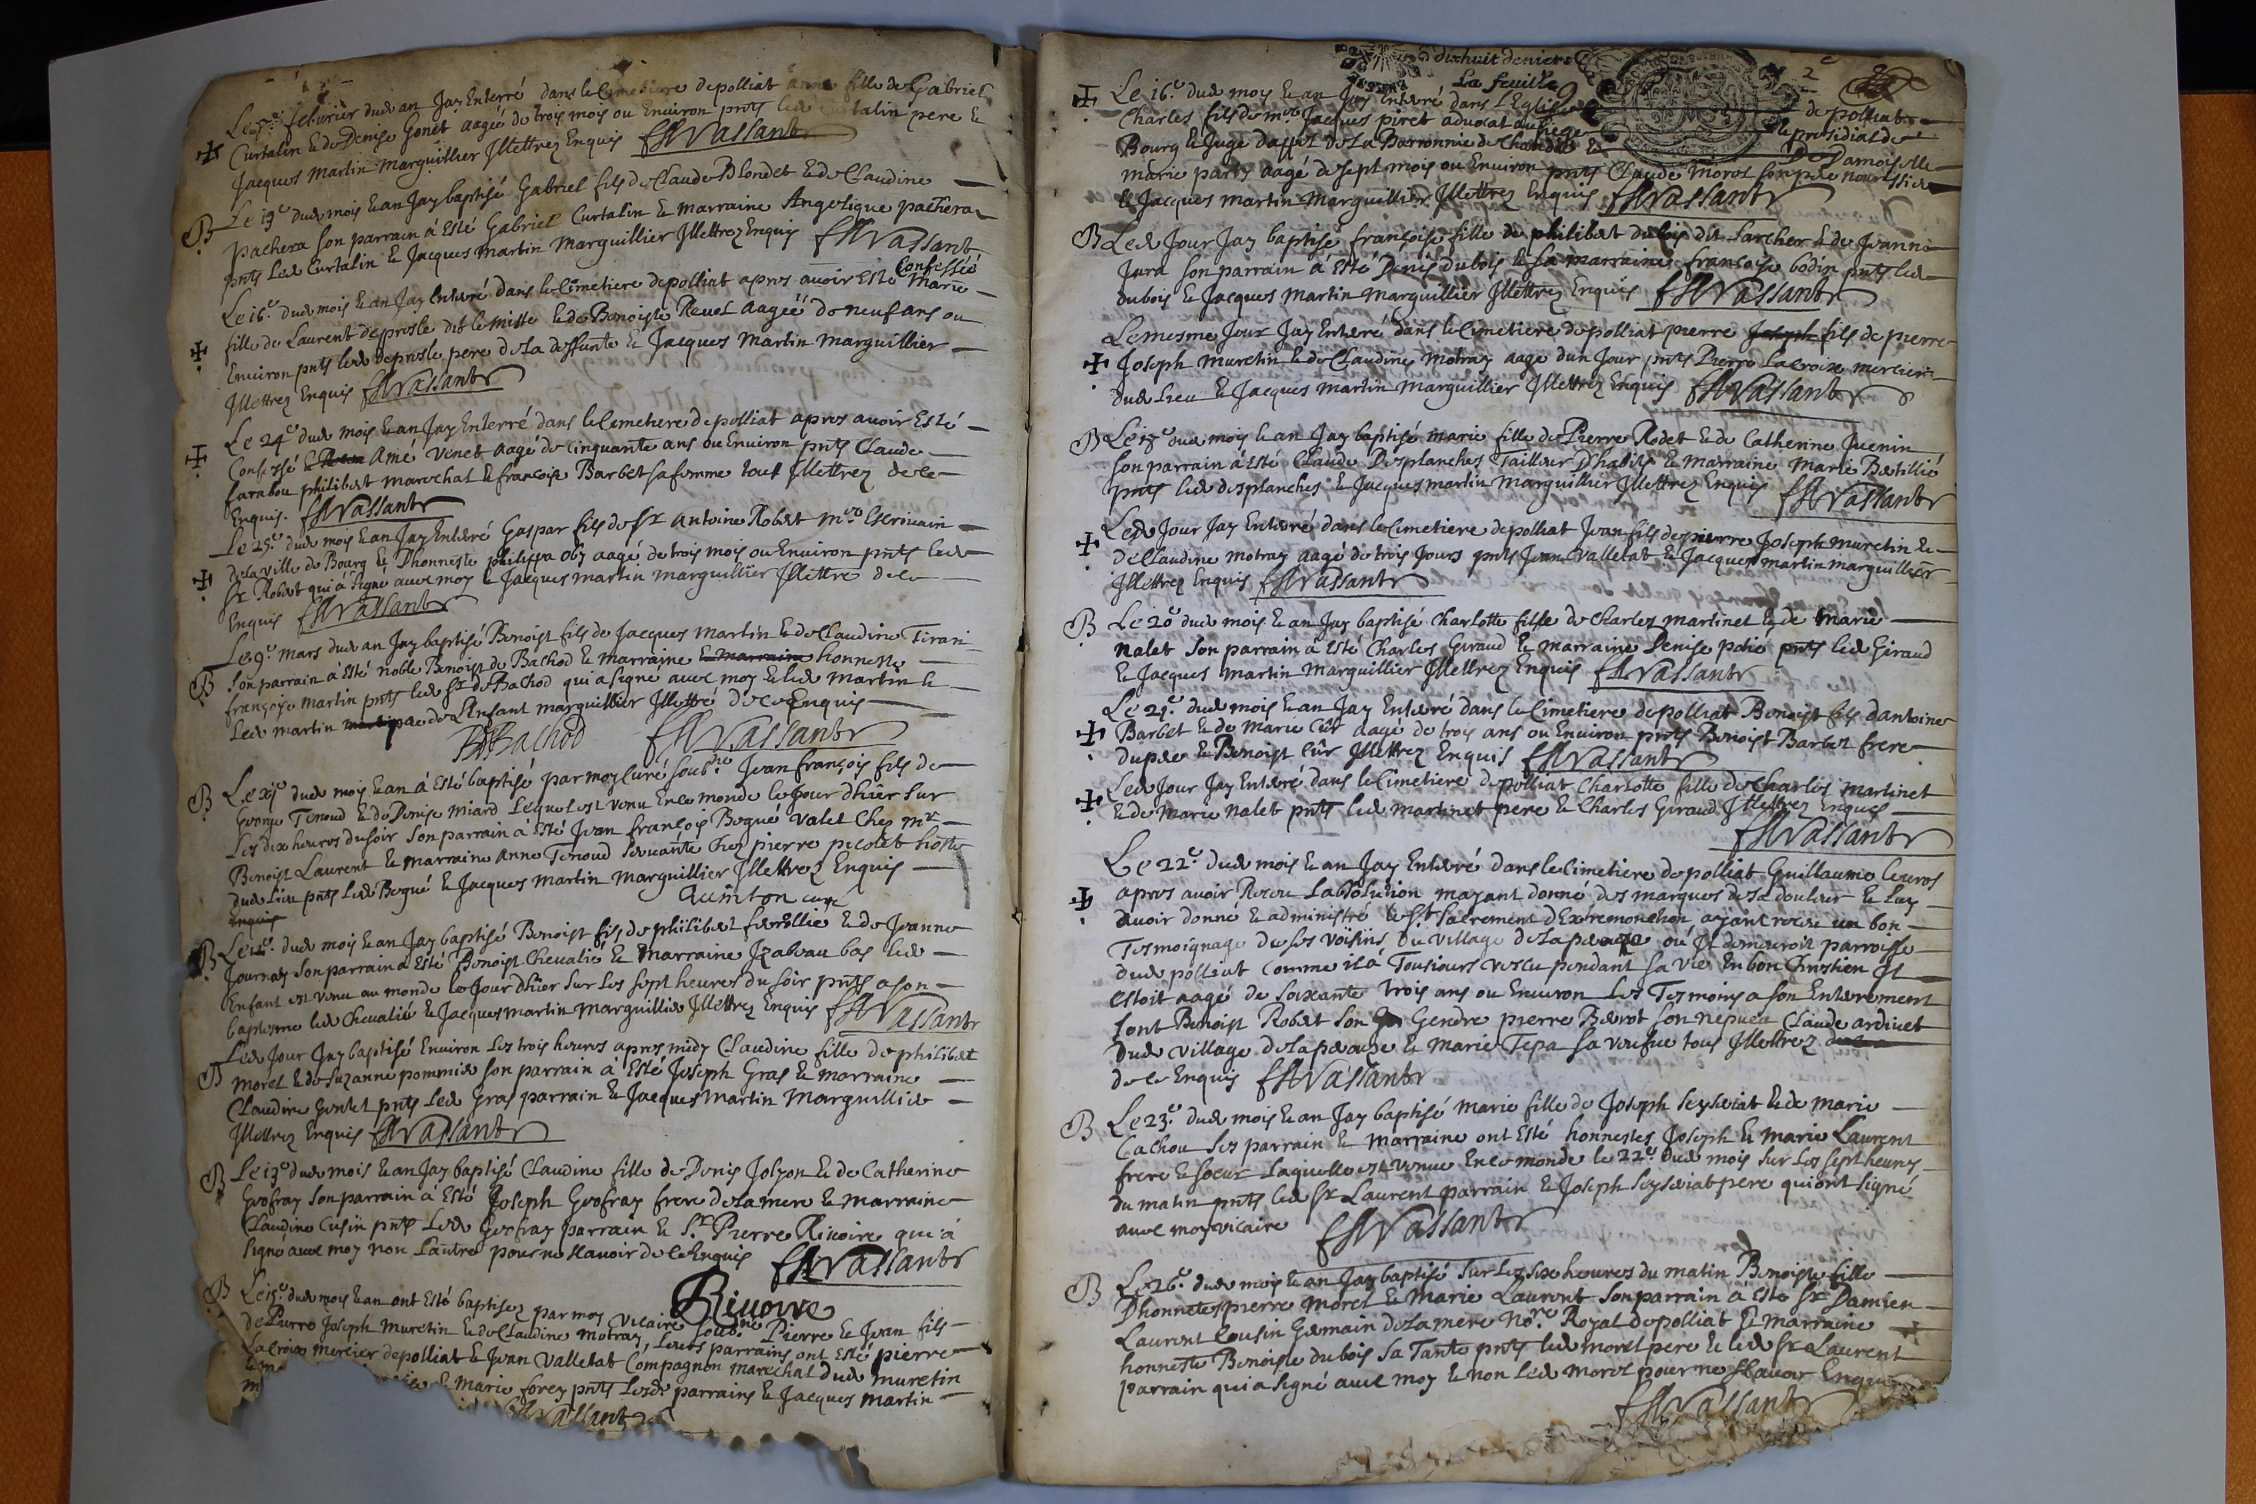 Le 5e febvrier dud an Jay Enterré dans le Cimetiere de polliat anne fille de Gabriel
Curtalin & de Denise Gonet aagée de trois mois ou Environ pnts led Curtalin pere &
Jacques Martin Marguillier Illettrez Enquis Vassant
B Le 13e dud mois & an Jay baptisé Gabriel fils de Claude Blondet & de Claudine
pachera son parrain à Esté Gabriel Curtalin & marraine Angelique pachera
pnts Led Curtalin & Jacques Martin Marguillier Illettrez Enquis Vassant
Confessée
Le 16e dud mois & an Jay Enterré dans le Cimetiere de polliat apres avoir Esté Marie
fille de Laurent deprosle dit le mitte & de Benoiste Revel aagéé de neuf ans ou
Environ pnts led deprosle pere de la deffunte & Jacques Martin Marguillier
Illettrez Enquis Vassant
Le 24e dud mois & an Jay Enterré dans le Cimetiere de polliat apres avoir Esté
Confessé Amé Venet aagé de cinquante ans ou Environ pnts Claude
farabou philibert marechal & françoise Barbet sa femme tous Illettrez de ce
Enquis. Vassant
Le 25e dud mois & an Jay Enterré Gaspar fils de Sr Antoine Robert mre Escrivain
de la ville de Bourg & Dhonneste philippa aagé de trois mois ou Environ pnts led
Sr Robert qui à signé avec moy & Jacques martin marguillier Illettré de ce
Enquis Vassant
Le 9e Mars dud an Jay baptisé Benoist fils de Jacques Martin & de Claudine Tirani
B Son parrain à Esté noble Benoist de Bachod & marraine & marraine honneste
françoise martin pnts led Sr de Bachod qui a signé avec moy & led martin &
led martin pere de L'Enfant marguillier Illettré de ce Enquis
Bachod Vassant
B Le xje dud mois & an à Esté baptisé par moy Curé soubné Jean françois fils de
George Tenoud & de Denise Miard Lequel est venu En ce monde le Jour dhier sur
Les dix heures du soir son parrain à Esté Jean françois Bogué valet Chez mre
Benoist Laurent & marraine Anne Tenoud servante Chez pierre picolet hoste
dud Lieu pnts Led Bogué & Jacques Martin Marguillier Illettrez Enquis
Enquis Quinson curé
B Le 12e dud mois & an Jay baptisé Benoist fils de philibert & de Jeanne
Journay son parrain à Esté Benoist Chevalié & marraine Izabeau bas led
Enfant est venu au monde le Jour dhier sur Les sept heures du soir pnts a son
baptesme led Chevalié & Jacques Martin Marguillier Illettrez Enquis Vassant
B Led Jour Jay baptisé Environ Les trois heures apres midy Claudine fille de philibert
Morel & de Suzanne pommier son parrain à Esté Joseph Gras & marraine
Claudine Gontet pnts Led Gras parrain & Jacques Martin Marguillier
Illettrez Enquis Vassant
B Le 13e dud mois & an Jay baptisé Claudine fille de Denis Jolyon & de Catherine
Geofray son parrain à Esté Joseph Geofray frere de la mere & marraine
Claudine Cusin pnts Led Geofray parrain & Sr Pierre Rivoire qui à
signé avec moy non Lautre pour ne scavoir de ce Enquis Vassant
Rivoire
B Le 15e dud mois & an ont Esté baptisez par moy vicaire soubné Pierre & Jean fils
de Pierre Joseph Muretin & de Claudine Motray, leurs parrains ont Esté pierre
Lacroix mercier de polliat & Jean Valletat Compagnon marechal dud muretin
& Marie forey pnts Lesd parrains & Jacques Martin
Vassant
dixhuit deniers
La feuille
2e
Le 16e dud mois & an Jay Enterré dans L'Eglise de polliat
Charles fils de mre Jacques piret advocat au siege & presidial de
Bourg & Juge Dappel de la Barronnie de & de Damoiselle
marie paris aagé de sept mois ou Environ pnts Claude Morel son pere nourissier
& Jacques Martin Marguillier Illettrez Enquis Vassant
B Led Jour Jay baptisé françoise fille de philibert dubois dit Larcher & de Jeanne
Jura son parrain à Esté Denis dubois & sa marraine françoise bodin pnts led
dubois & Jacques Martin Marguillier Illettrez Enquis Vassant
Le mesme Jour Jay Enterré dans le Cimetiere de polliat pierre Joseph fils de pierre
Joseph Muretin & de Claudine Motray aagé dun Jour pnts Pierre Lacroix mercier
dud Lieu & Jacques Martin Marguillier Illettrez Enquis Vassant
B Le 17e dud mois & an Jay baptisé marie fille de Pierre Rodet & de Catherine Juenin
son parrain à Esté Claude Desplanches Tailleur Dhabits & marraine Marie Bertillié
pnts led desplanches & Jacques martin Marguillier Illettrez Enquis Vassant
Led Jour Jay Enterré dans le Cimetiere de polliat Jean fils de pierre Joseph Muretin &
de Claudine motray aagé de trois Jours pnts Jean Valletat & Jacques martin marguillier
Illettrez Enquis Vassant
B Le 20e dud mois & an Jay baptisé Charlotte fille de Charles martinet & de Marie
Nalet son parrain à Esté Charles Giraud & marraine Denise patié pnts led Giraud
& Jacques Martin Marguillier Illettrez Enquis Vassant
Le 21e dud mois & an Jay Enterré dans le Cimetiere de polliat Benoist fils dantoine
Barbet & de Marie Cûr aagé de trois ans ou Environ pnts Benoist Barbet frere
du pere & Benoist Cûr Illettrez Enquis Vassant
Led Jour Jay Enterré dans le Cimetiere de polliat Charlotte fille de Charles Martinet
& de Marie Nalet pnts led martinet pere & Charles Giraud Illettrez Enquis
Vassant
Le 22e dud mois & an Jay Enterré dans le Cimetiere de polliat Guillaume
apres avoir Receu Labsolution mayant donné des marques de sa douleur & Luy
avoir donné & administré le St Sacrement d'Extremonction ayant receu un bon
Tesmoignage de ses voisins du village de Laperouze où Il demeuroit parroisse
dud polliat Comme il à Tousiours vescu pendant sa vie En bon Chrestien Il
estoit aagé de soixante trois ans ou Environ Les Tesmoins a son Enterrement
sont Benoist Robert son Gendre pierre Berrot son nepveu Claude ardinet
Dud village de Laperouze & Marie Tepa sa veufve tous Illettrez
de ce Enquis Vassant
B Le 23e dud mois & an Jay baptisé Marie fille de Joseph Seyseriat & de Marie
Cachou ses parrain & Marraine ont Esté honnestes Joseph & Marie Laurent
frere & soeur Laquelle est venue En ce monde le 22e dud mois sur Les sept heures
du matin pnts led Sr Laurent parrain & Joseph Seyseriat pere qui ont signé
avec moy vicaire Vassant
B Le 26e dud mois & an Jay baptisé sur Les six heures du matin Benoiste fille
Dhonnestes pierre Morel & Marie Laurent son parrain à Esté Sr Damien
Laurent Cousin Germain de la mere Nore Royal de polliat & Marraine
honneste Benoiste dubois sa Tante pnts led morel pere & led Sr Laurent
parrain qui a signé avec moy & non Led Morel pour ne scavoir Enquis
Vassant